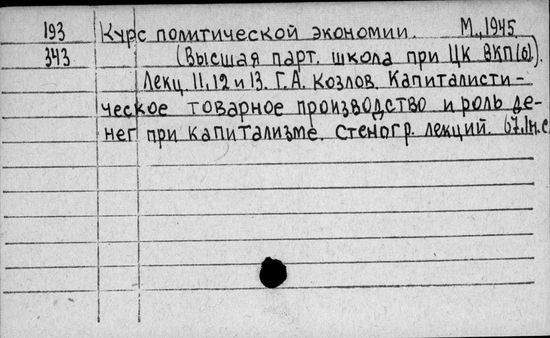 193 Курс политической экономии. М., 1945.
343 (Высшая парт. школа при ЦК ВКП(б).
Лекц. 11, 12 и 13. Г.А. Козлов. Капиталисти-
ческое товарное производство и роль де-
нег при капитализме. Стеногр. лекций.